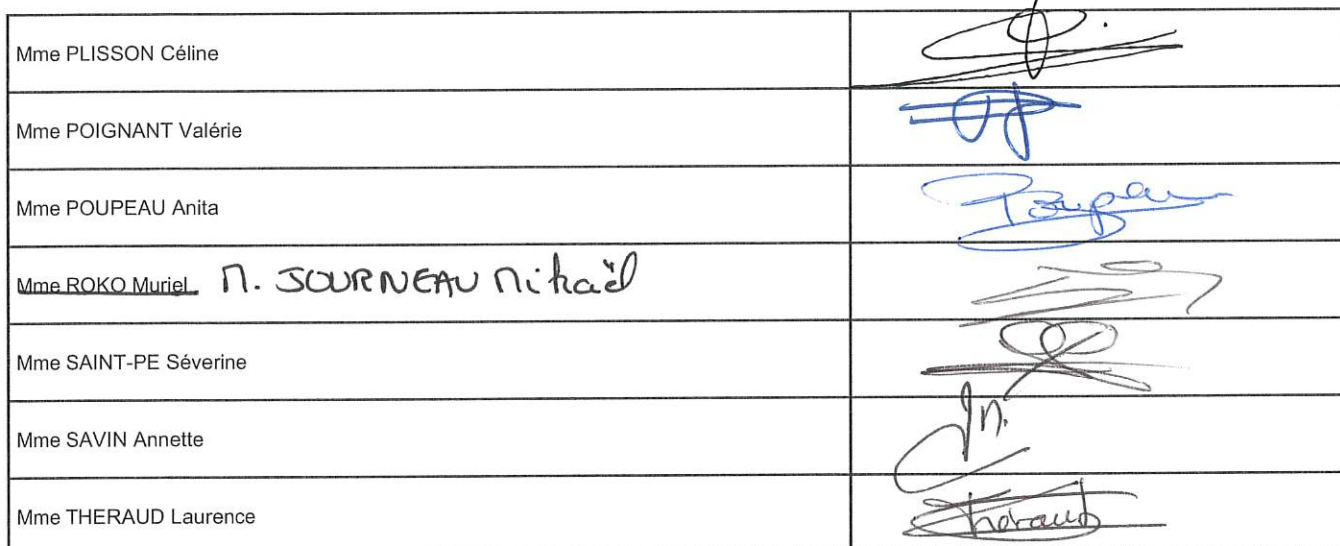 Mme PLISSON Céline
Mme POIGNANT Valérie
Mme POUPEAU Anita
Poupeau
Mme ROKO Muriel M. JOURNEAU Mikaël
Mme SAINT-PE Séverine
Mme SAVIN Annette
Mme THERAUD Laurence
Theraud